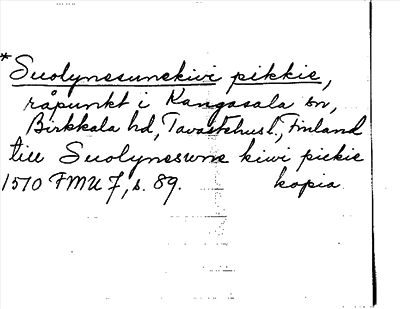 *Suolynesunekivi pikkie,
råpunkt i Kangasala sn,
Birkkala hd, Tavastehus l., Finland
till Suolynesune kiwi pickie
1510 FMU 7, s. 89. kopia